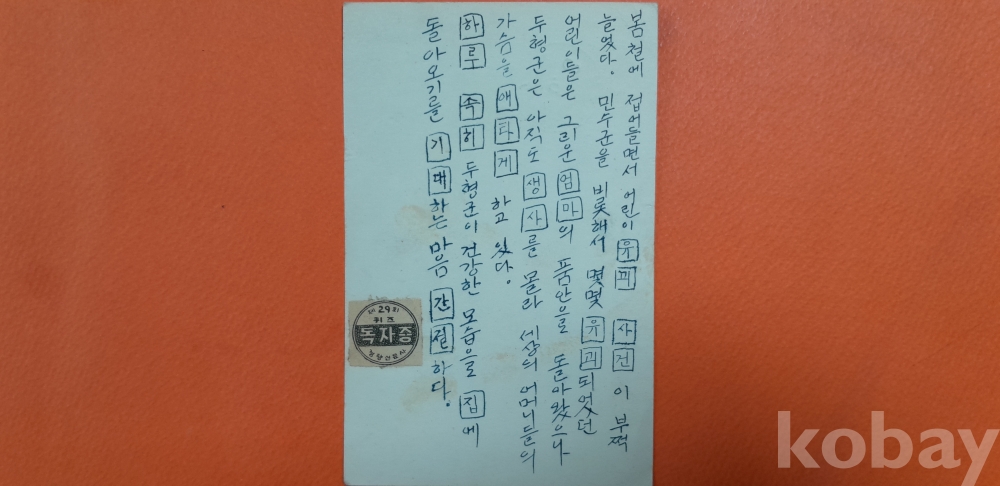 봄철에 접어들면서 어린이 유괴 사건이 부쩍
늘었다. 민수군을 비롯해서 몇몇 유괴되었던
어린이들은 그리운 엄마의 품안으로 돌아왔으나
두형군은 아직도 생사를 몰라 세상의 어머니들의
가슴을 애타게 하고 있다.
하루 속히 두형군이 건강한 모습으로 집에
돌아오기를 기대하는 마음 간절하다.
제29회
퀴즈
독자증
kobay